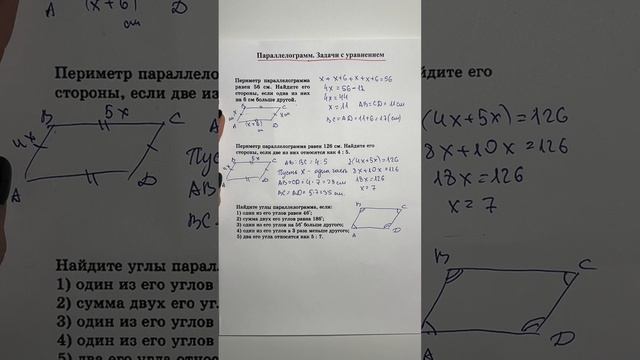 Параллелограмм. Задачи с уравнением
Периметр параллелограмма
равен 56 см. Найдите его
стороны, если одна из них
на 6 см больше другой.
x + x+6 + x + x+6 = 56
4x = 56 - 12
4x = 44
x = 11 AB = CD = 11 см
BC = AD = 11+6 = 17 (см)
B C
x см x см
A (x+6) см D
Периметр параллелограмма равен 126 см. Найдите его
стороны, если две из них относятся как 4 : 5.
B 5x C
4x
A D
AB : BC = 4 : 5
Пусть x - одна часть
AB = CD = 4 · 7 = 28 см
BC = AD = 5·7 = 35 см
2(4x+5x) = 126
8x + 10x = 126
18x = 126
x = 7
Найдите углы параллелограмма, если:
1) один из его углов равен 46°;
2) сумма двух его углов равна 186°;
3) один из его углов на 56° больше другого;
4) один из его углов в 3 раза меньше другого;
5) два его угла относятся как 5 : 7.
B C
A D
A (x+6) D
см
Периметр паралле
стороны, если две из
B 5x C
4x
A D
Пуст
AB=
BC=
Найдите углы парал
1) один из его углов
2) сумма двух его уг
3) один из его углов
4) один из его углов
5) два его угла относ
дите его
(4x+5x) = 126
8x + 10x = 126
18x = 126
x = 7
B C
A D